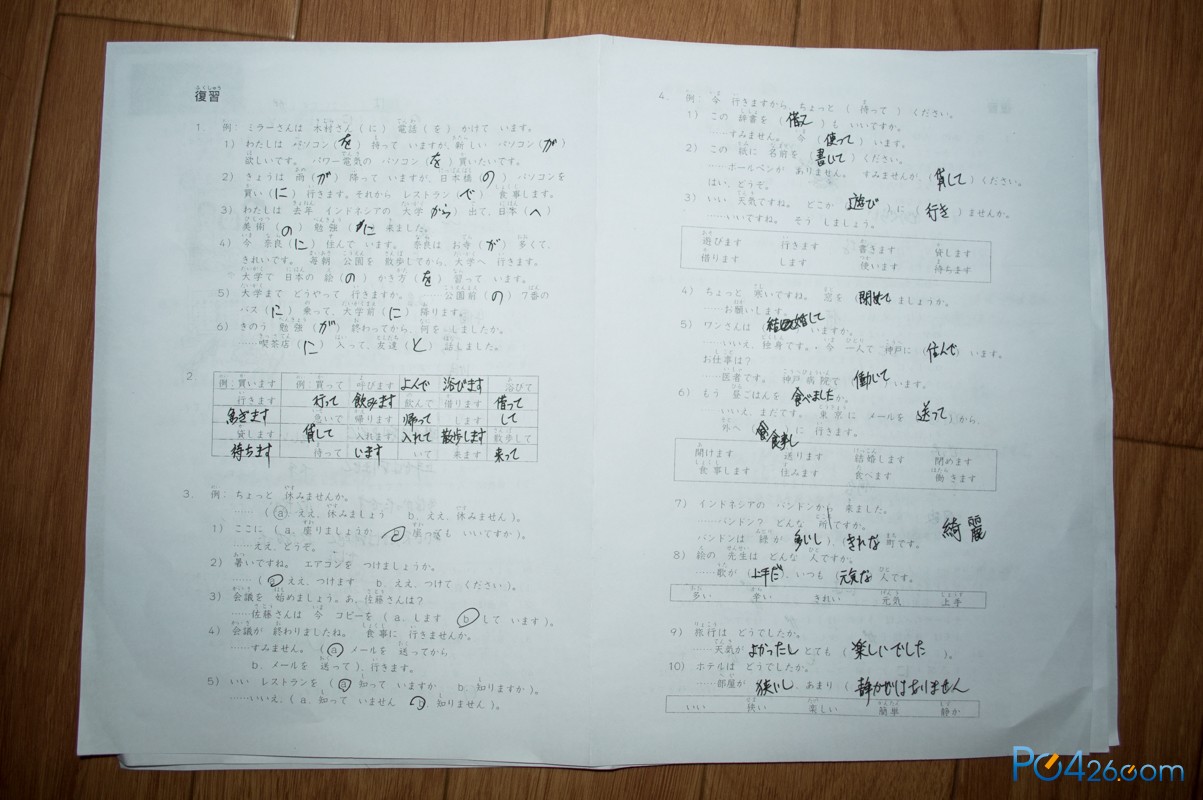 復習
1. 例：ミラーさんは 木村さん（に）電話（を）かけて います。
1) わたしは パソコン（を）持って いますが、新しい パソコン（が）
欲しいです。 パワー電気の パソコン（を）買いたいです。
2) きょうは 雨（が）降って いますが、日本橋（の）パソコンを
買い（に）行きます。それから レストラン（で）食事します。
3) わたしは 去年 インドネシアの 大学（から）出て、日本（へ）
美術（の）勉強（に）来ました。
4) 今 奈良（に）住んで います。 奈良は お寺（が）多くて、
きれいです。 毎朝 公園を 散歩してから、大学へ 行きます。
大学で 日本の 絵（の）かき方（を）習って います。
5) 大学まで どうやって 行きますか。 ……公園前（の）7番の
バス（に）乗って、大学前（に）降ります。
6) きのう 勉強（が）終わってから、何を しましたか。
……喫茶店（に）入って、友達（と）話しました。
2
例：買います 例：買って 呼びます よんで 浴びます 浴びて
行きます 行って 飲みます 飲んで 借ります 借って
急ぎます 急いで 帰ります 帰って します して
貸します 貸して 入れます 入れて 散歩します 散歩して
待ちます 待って います いて 来ます 来って
3. 例：ちょっと 休みませんか。
……（ⓐ ええ、休みましょう b. ええ、休みません）。
1) ここに（a. 座りましょうか ⓑ 座っても いいですか）。
……ええ、どうぞ。
2) 暑いですね。 エアコンを つけましょうか。
……（ⓐ ええ、つけます b. ええ、つけて ください）。
3) 会議を 始めましょう。あ、佐藤さんは？
……佐藤さんは 今 コピーを（a. します ⓑ して います）。
4) 会議が 終わりましたね。 食事に 行きませんか。
……すみません。（ⓐ メールを 送ってから
b. メールを 送って）、行きます。
5) いい レストランを（ⓐ 知って いますか b. 知りますか）。
……いいえ、（a. 知って いません ⓑ 知りません）。
4. 例：今 行きますから、ちょっと（待って）ください。
1) この 辞書を（借え）も いいですか。
……すみません。 今（使って）います。
2) この 紙に 名前を（書いて）ください。
……ボールペンが ありません。 すみませんが、（貸して）ください。
はい、どうぞ。
3) いい 天気ですね。 どこか（遊び）に（行き）ませんか。
……いいですね。 そう しましょう。
遊びます 行きます 書きます 貸します
借ります します 使います 待ちます
4) ちょっと 寒いですね。 窓を（閉めて）ましょうか。
……お願いします。
5) ワンさんは（結婚して）いますか。
……いいえ、独身です。 今 一人で 神戸に（住んで）います。
お仕事は？
……医者です。 神戸病院で（働いて）います。
6) もう 昼ごはんを（食べました）か。
……いいえ、まだです。 東京に メールを（送って）から、
外へ（食事し）に 行きます。
開けます 送ります 結婚します 閉めます
食事します 住みます 食べます 働きます
7) インドネシアの バンドンから 来ました。
……バンドン？ どんな 所ですか。
バンドンは 緑が（多いし）、（きれな）町です。
綺麗
8) 絵の 先生は どんな 人ですか。
……歌が（上手だ）、いつも（元気な）人です。
多い 辛い きれい 元気 上手
9) 旅行は どうでしたか。
……天気が（よかったし）とても（楽しいでした）。
10) ホテルは どうでしたか。
……部屋が（狭いし）、あまり（静かではありません
いい 狭い 楽しい 簡単 静か
PC426.com